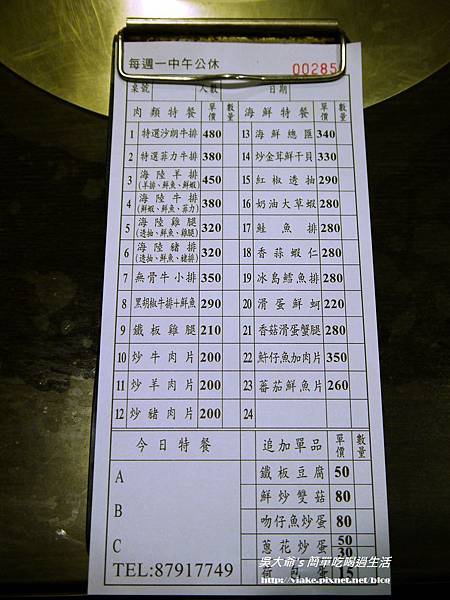 每週一中午公休
00285
桌號 人數 日期
肉類特餐 單價 數量 海鮮特餐 單價 數量
1 特選沙朗牛排 480 13 海鮮總匯 340
2 特選菲力牛排 380 14 炒金茸鮮干貝 330
3 海陸羊排 (羊排、鮮魚、鮮蝦) 450 15 紅椒透抽 290
4 海陸牛排 (鮮蝦、鮮魚、菲力) 380 16 奶油大草蝦 280
5 海陸雞腿 (透抽、鮮魚、雞腿) 320 17 鮭魚排 280
6 海陸豬排 (透抽、鮮魚、豬排) 320 18 香蒜蝦仁 280
7 無骨牛小排 350 19 冰島鱈魚排 280
8 黑胡椒牛排+鮮魚 290 20 滑蛋鮮蚵 220
9 鐵板雞腿 210 21 香菇滑蛋蟹腿 280
10 炒牛肉片 200 22 魩仔魚加肉片 350
11 炒羊肉片 200 23 蕃茄鮮魚片 260
12 炒豬肉片 200 24
今日特餐 追加單品 單價 數量
A
B
C
鐵板豆腐 50
鮮炒雙菇 80
吻仔魚炒蛋 80
蔥花炒蛋 50 30
蛋 15
TEL:87917749
吳大爺's 簡單吃喝過生活
http://viake.pixnet.net/blog